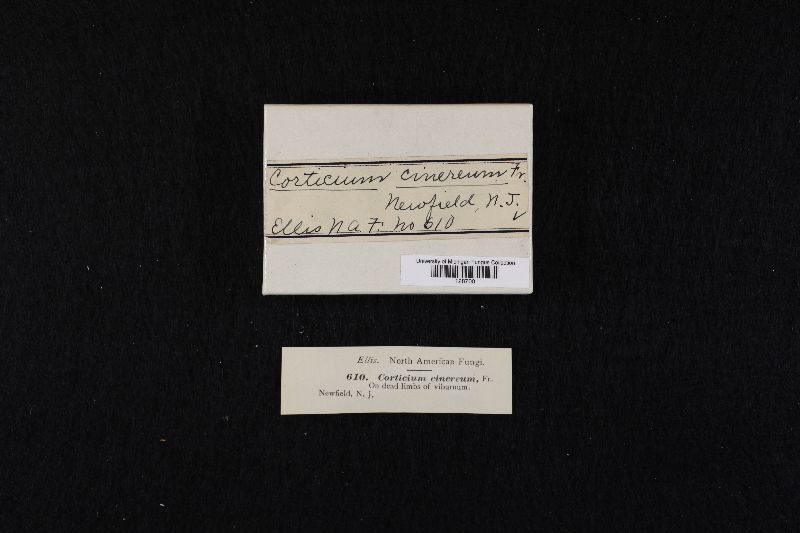 Corticium cinereum Fr.
Newfield, N.J.
Ellis N.A.F. No 610
University of Michigan Fungus Collection
Ellis. North American Fungi.
610. Corticium cinereum, Fr.
On dead limbs of viburnum.
Newfield, N. J.